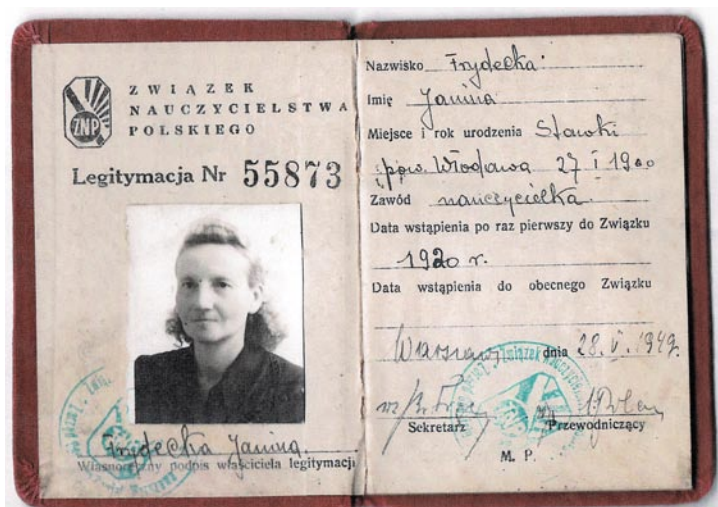 ZWIĄZEK
NAUCZYCIELSTWA
POLSKIEGO
ZNP
Legitymacja Nr 55873
Frydecka Janina
Własnoręczny podpis właściciela legitymacji
Nazwisko Frydecka
Imię Janina
Miejsce i rok urodzenia Stawki
pow. Włodawa 27 I 1900
Zawód nauczycielka
Data wstąpienia po raz pierwszy do Związku
1920 r.
Data wstąpienia do obecnego Związku
Warszawa, dnia 28.V.1949.
Sekretarz Przewodniczący
M. P.